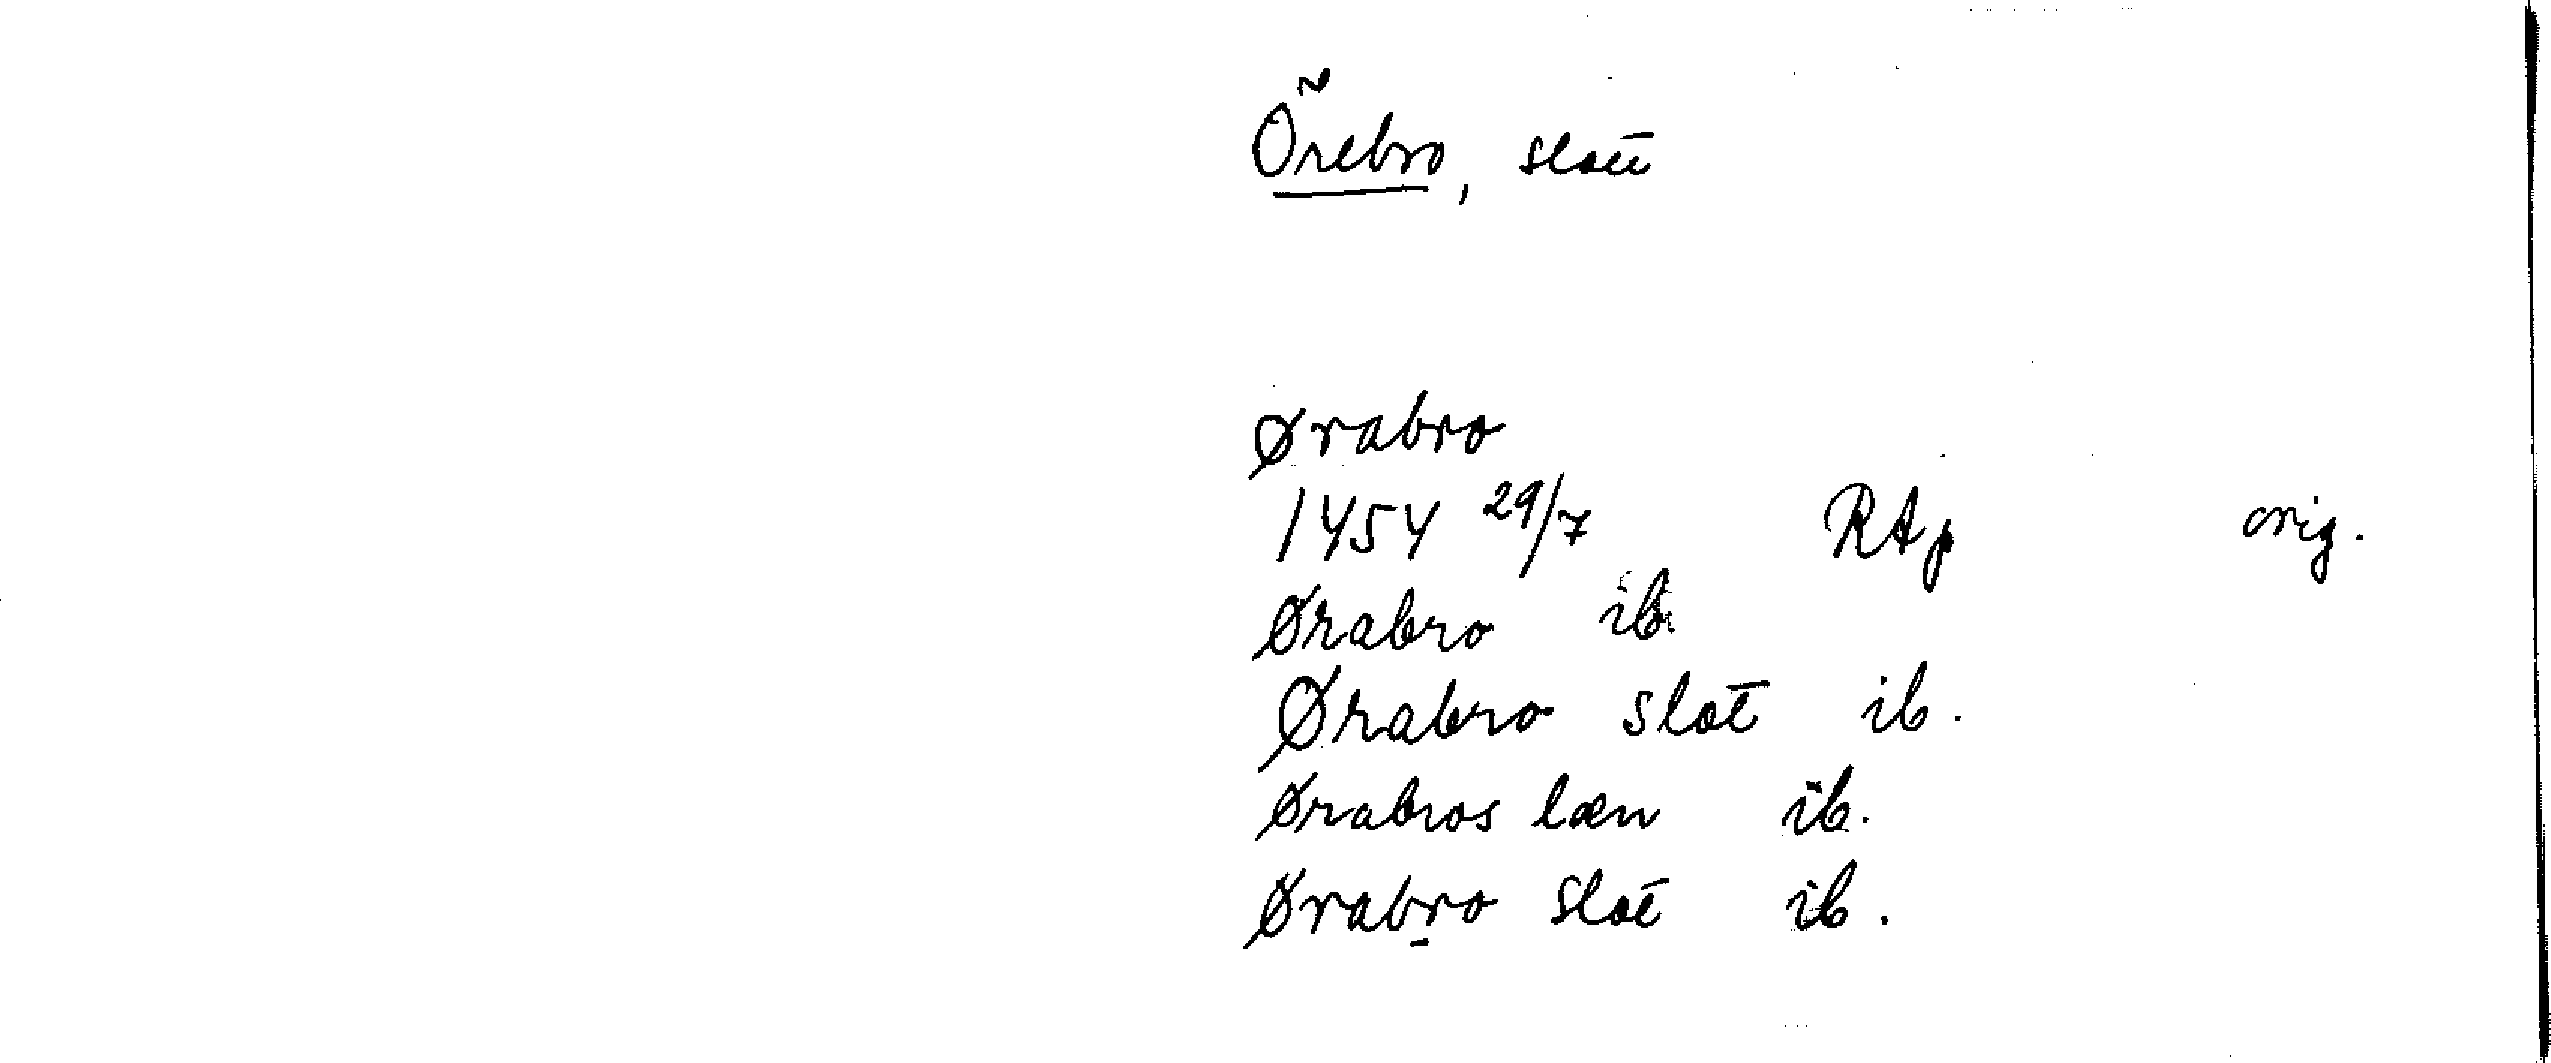 Örebro, slott
Ørabro
1454 29/7 RAp orig.
Ørabro ib.
Ørabro slot ib.
Ørabros læn ib.
Ørabro slot ib.